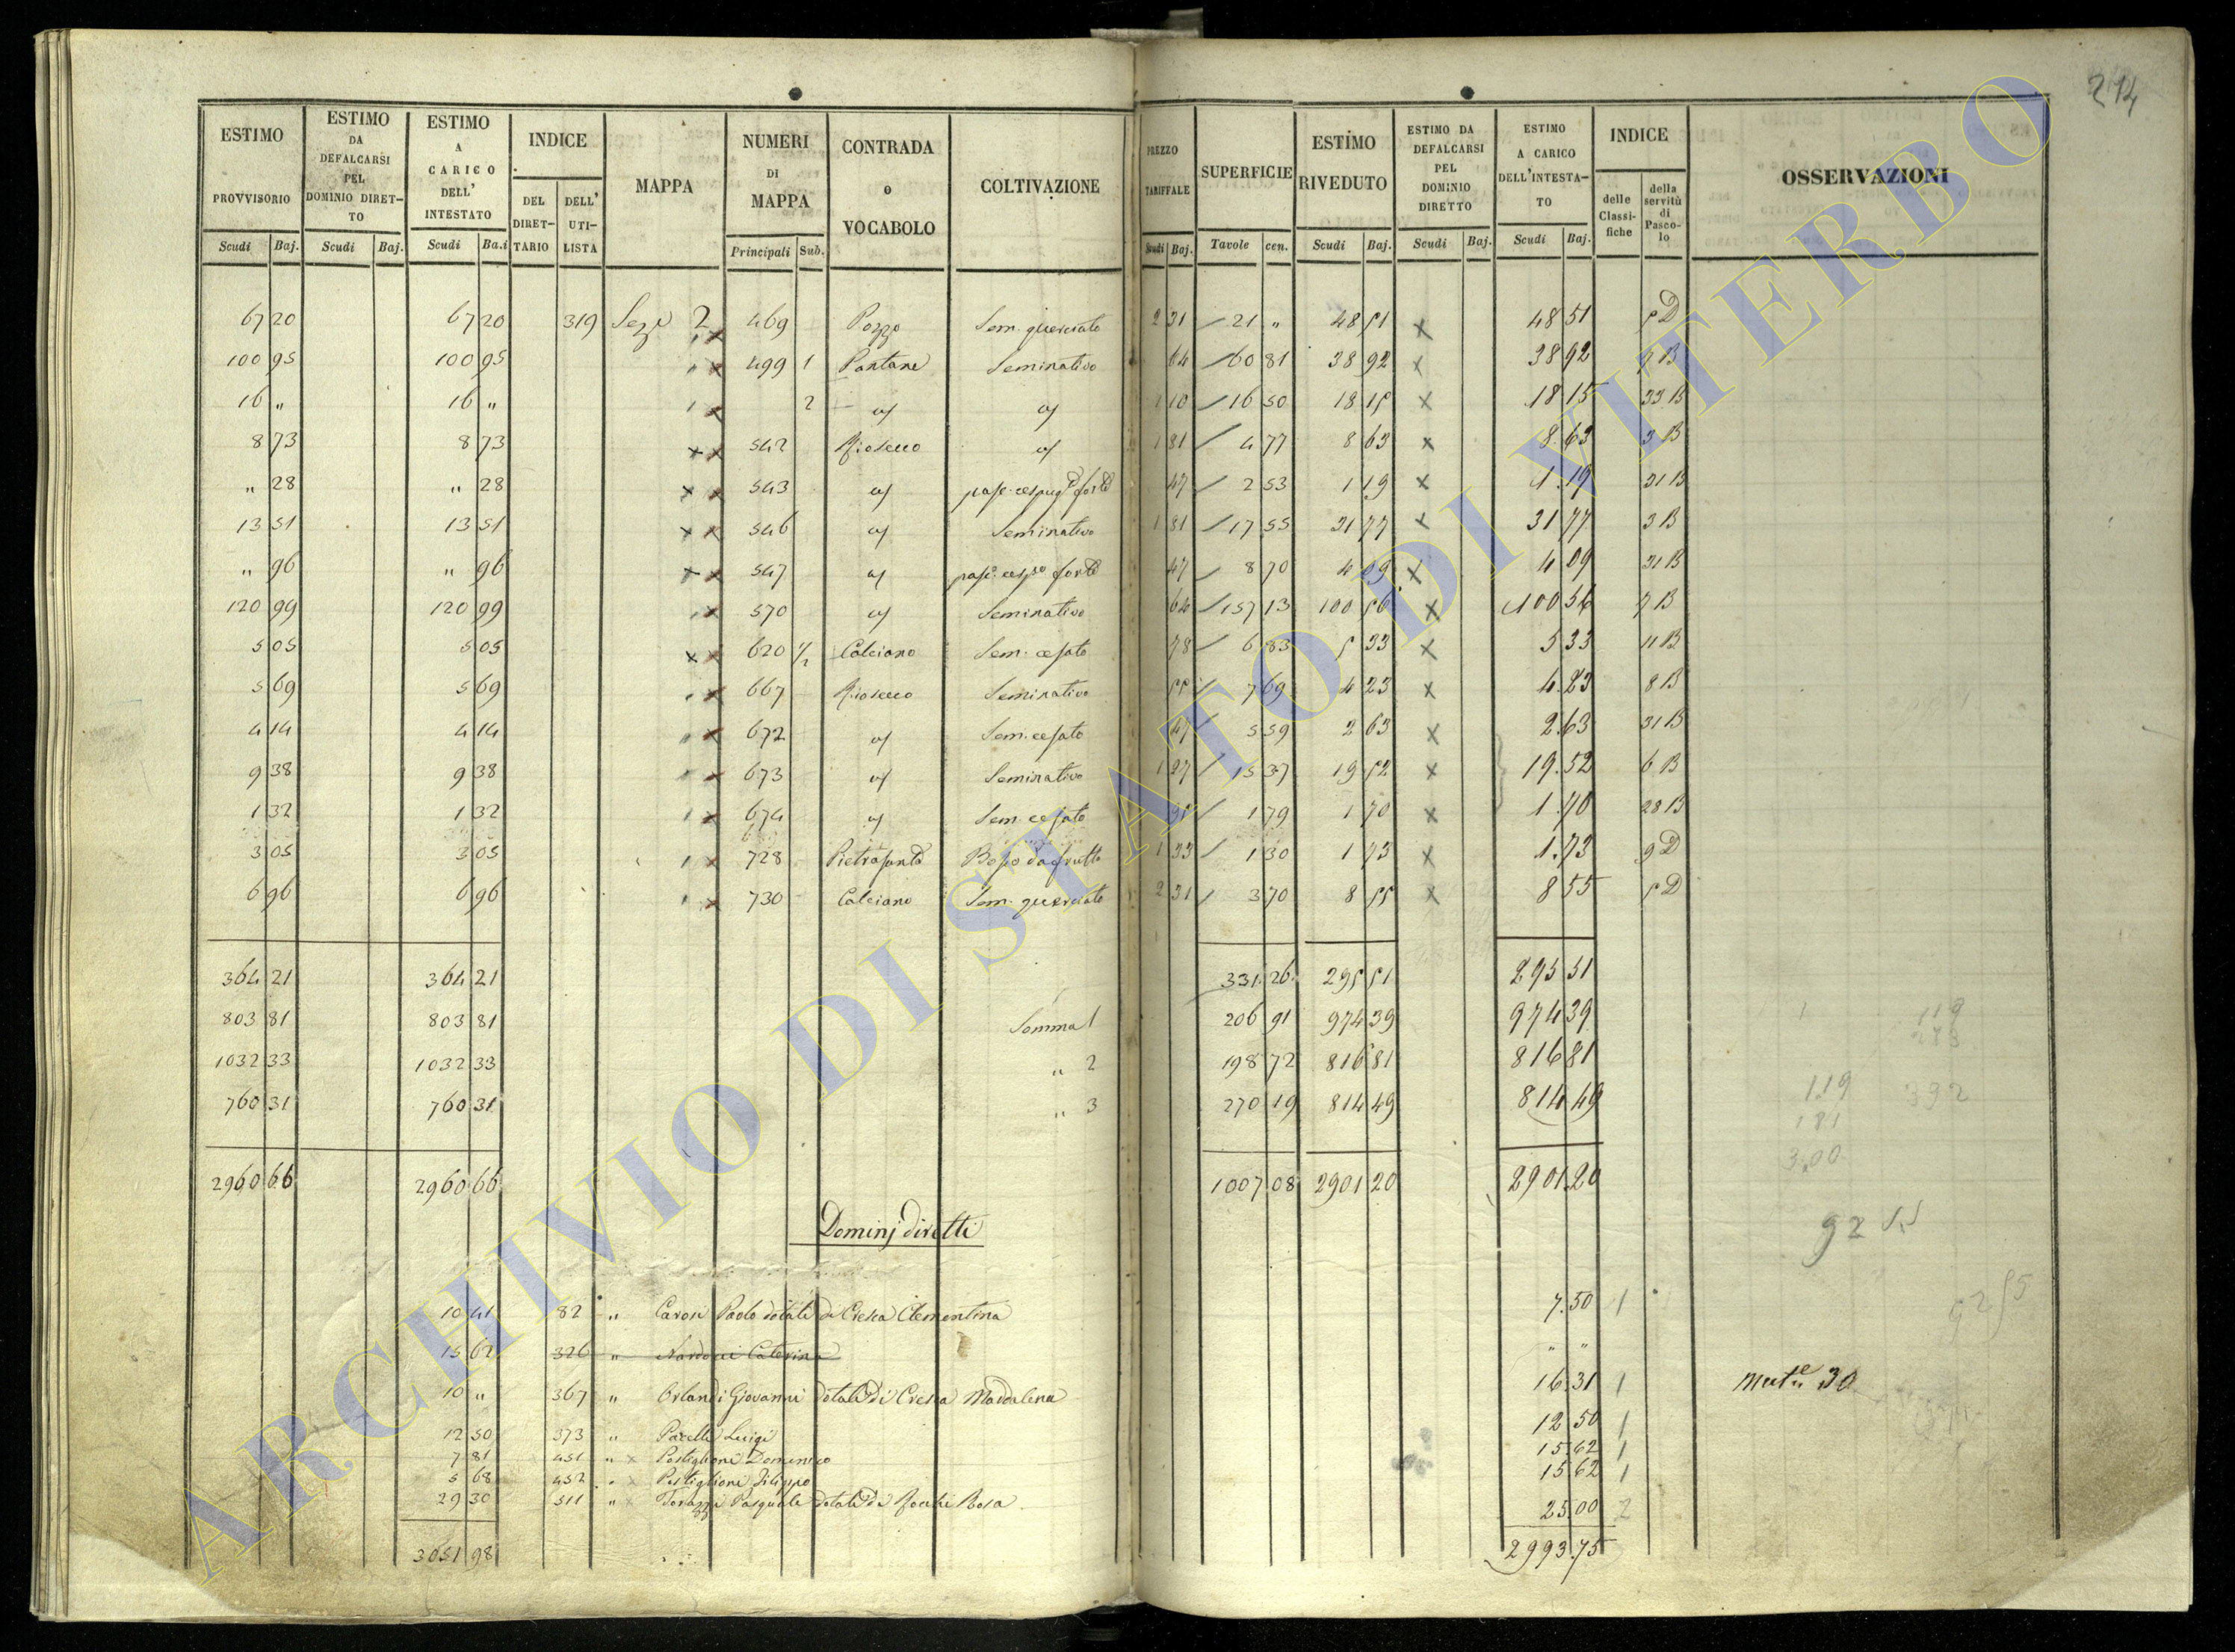 214
ESTIMO PROVVISORIO
ESTIMO DA DEFALCARSI PEL DOMINIO DIRET-TO
ESTIMO A CARICO DELL' INTESTATO
INDICE
DEL DIRET-TARIO
DELL' UTI-LISTA
MAPPA
NUMERI DI MAPPA
CONTRADA o VOCABOLO
COLTIVAZIONE
PREZZO TARIFFALE
SUPERFICIE
ESTIMO RIVEDUTO
ESTIMO DA DEFALCARSI PEL DOMINIO DIRETTO
ESTIMO A CARICO DELL'INTESTA-TO
INDICE
delle Classi-fiche
della servitù di Pasco-lo
OSSERVAZIONI
Scudi Baj. Scudi Baj. Scudi Ba.i Principali Sub. Scudi Baj. Tavole cen. Scudi Baj. Scudi Baj. Scudi Baj.
67 20 67 20 319 Sez.e 2 469 Pozzo Sem. querciato 2 31 21 " 48 51 x 48 51 5 D
100 95 100 95 " x 499 1 Pantane Seminativo 64 60 81 38 92 x 38 92 7 B
16 " 16 " " x 2 1 10 16 50 18 15 x 18 15 33 B
8 73 8 73 x x 542 Riosecco 1 81 4 77 8 63 x 8 63 3 B
" 28 " 28 x x 543 47 2 53 1 19 x 1.19 31 B
13 51 13 51 x x 546 Seminativo 1 81 17 55 31 77 x 31 77 3 B
" 96 " 96 x x 547 47 8 70 4 09 x 4 09 31 B
120 99 120 99 " x 570 Seminativo 64 157 13 100 56 x 100 56 7 B
5 05 5 05 x x 620 1/2 Calciano Sem. cesato 78 6 83 5 33 x 5 33 11 B
5 69 5 69 " x 667 Riosecco Seminativo 55 7 69 4 23 x 4.23 8 B
4 14 4 14 " x 672 Sem. cesato 47 5 59 2 63 x 2.63 31 B
9 38 9 38 " x 673 Seminativo 1 27 15 37 19 52 x 19.52 6 B
1 32 1 32 " x 674 Sem. cesato 95 1 79 1 70 x 1.70 28 B
3 05 3 05 " x 728 Bosco da frutto 1 33 1 30 1 73 x 1.73 9 D
6 96 6 96 " x 730 Calciano Sem. querciato 2 31 3 70 8 55 x 8 55 5 D
364 21 364 21 331 26 295 51 295 51
803 81 803 81 Somma 1 206 91 974 39 974 39
1032 33 1032 33 " 2 198 72 816 81 816 81
760 31 760 31 " 3 270 19 814 49 814 49
2960 66 2960 66 1007 08 2901 20 2901.20
119
392
119
181
3.00
Dominj diretti
10 41 82 " Carosi Paolo dotali di Cresca Clementina 7.50 1
15 62 326 " Nardocci Caterina " "
10 " 367 " Orlandi Giovanni dotali di Cresca Maddalena 16.31 1 30
12 50 373 " Pacelli Luigi 12 50 1
7 81 451 " Postiglioni Domenico 15.62 1
5 68 452 " Postiglioni Filippo 15 62 1
29 30 511 " Pasquale dotali di Rosa 25.00 2
3051 98 2993.75
ARCHIVIO DI STATO DI VITERBO